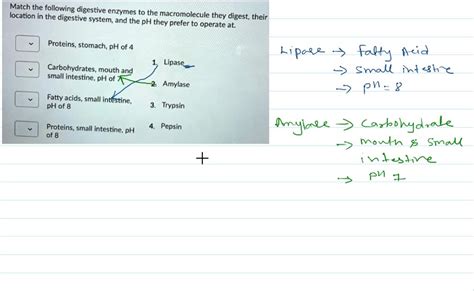 Match the following digestive enzymes to the macromolecule they digest, their
location in the digestive system, and the pH they prefer to operate at.
Proteins, stomach, pH of 4
Carbohydrates, mouth and
small intestine, pH of 7
Fatty acids, small intestine,
pH of 8
Proteins, small intestine, pH
of 8
1. Lipase
2. Amylase
3. Trypsin
4. Pepsin
Lipase → Fatty Acid
→ small intestine
→ pH = 8
Amylase → Carbohydrate
→ mouth & small
intestine
→ pH 7